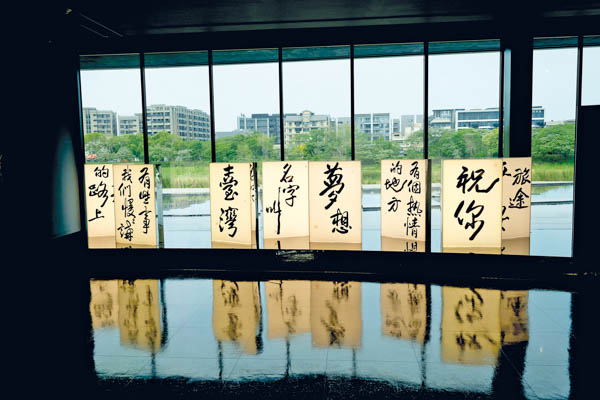 旅途
祝你
有個熱情
的地方
夢想
名字
叫
臺灣
有些事
我們慢慢講
的路上